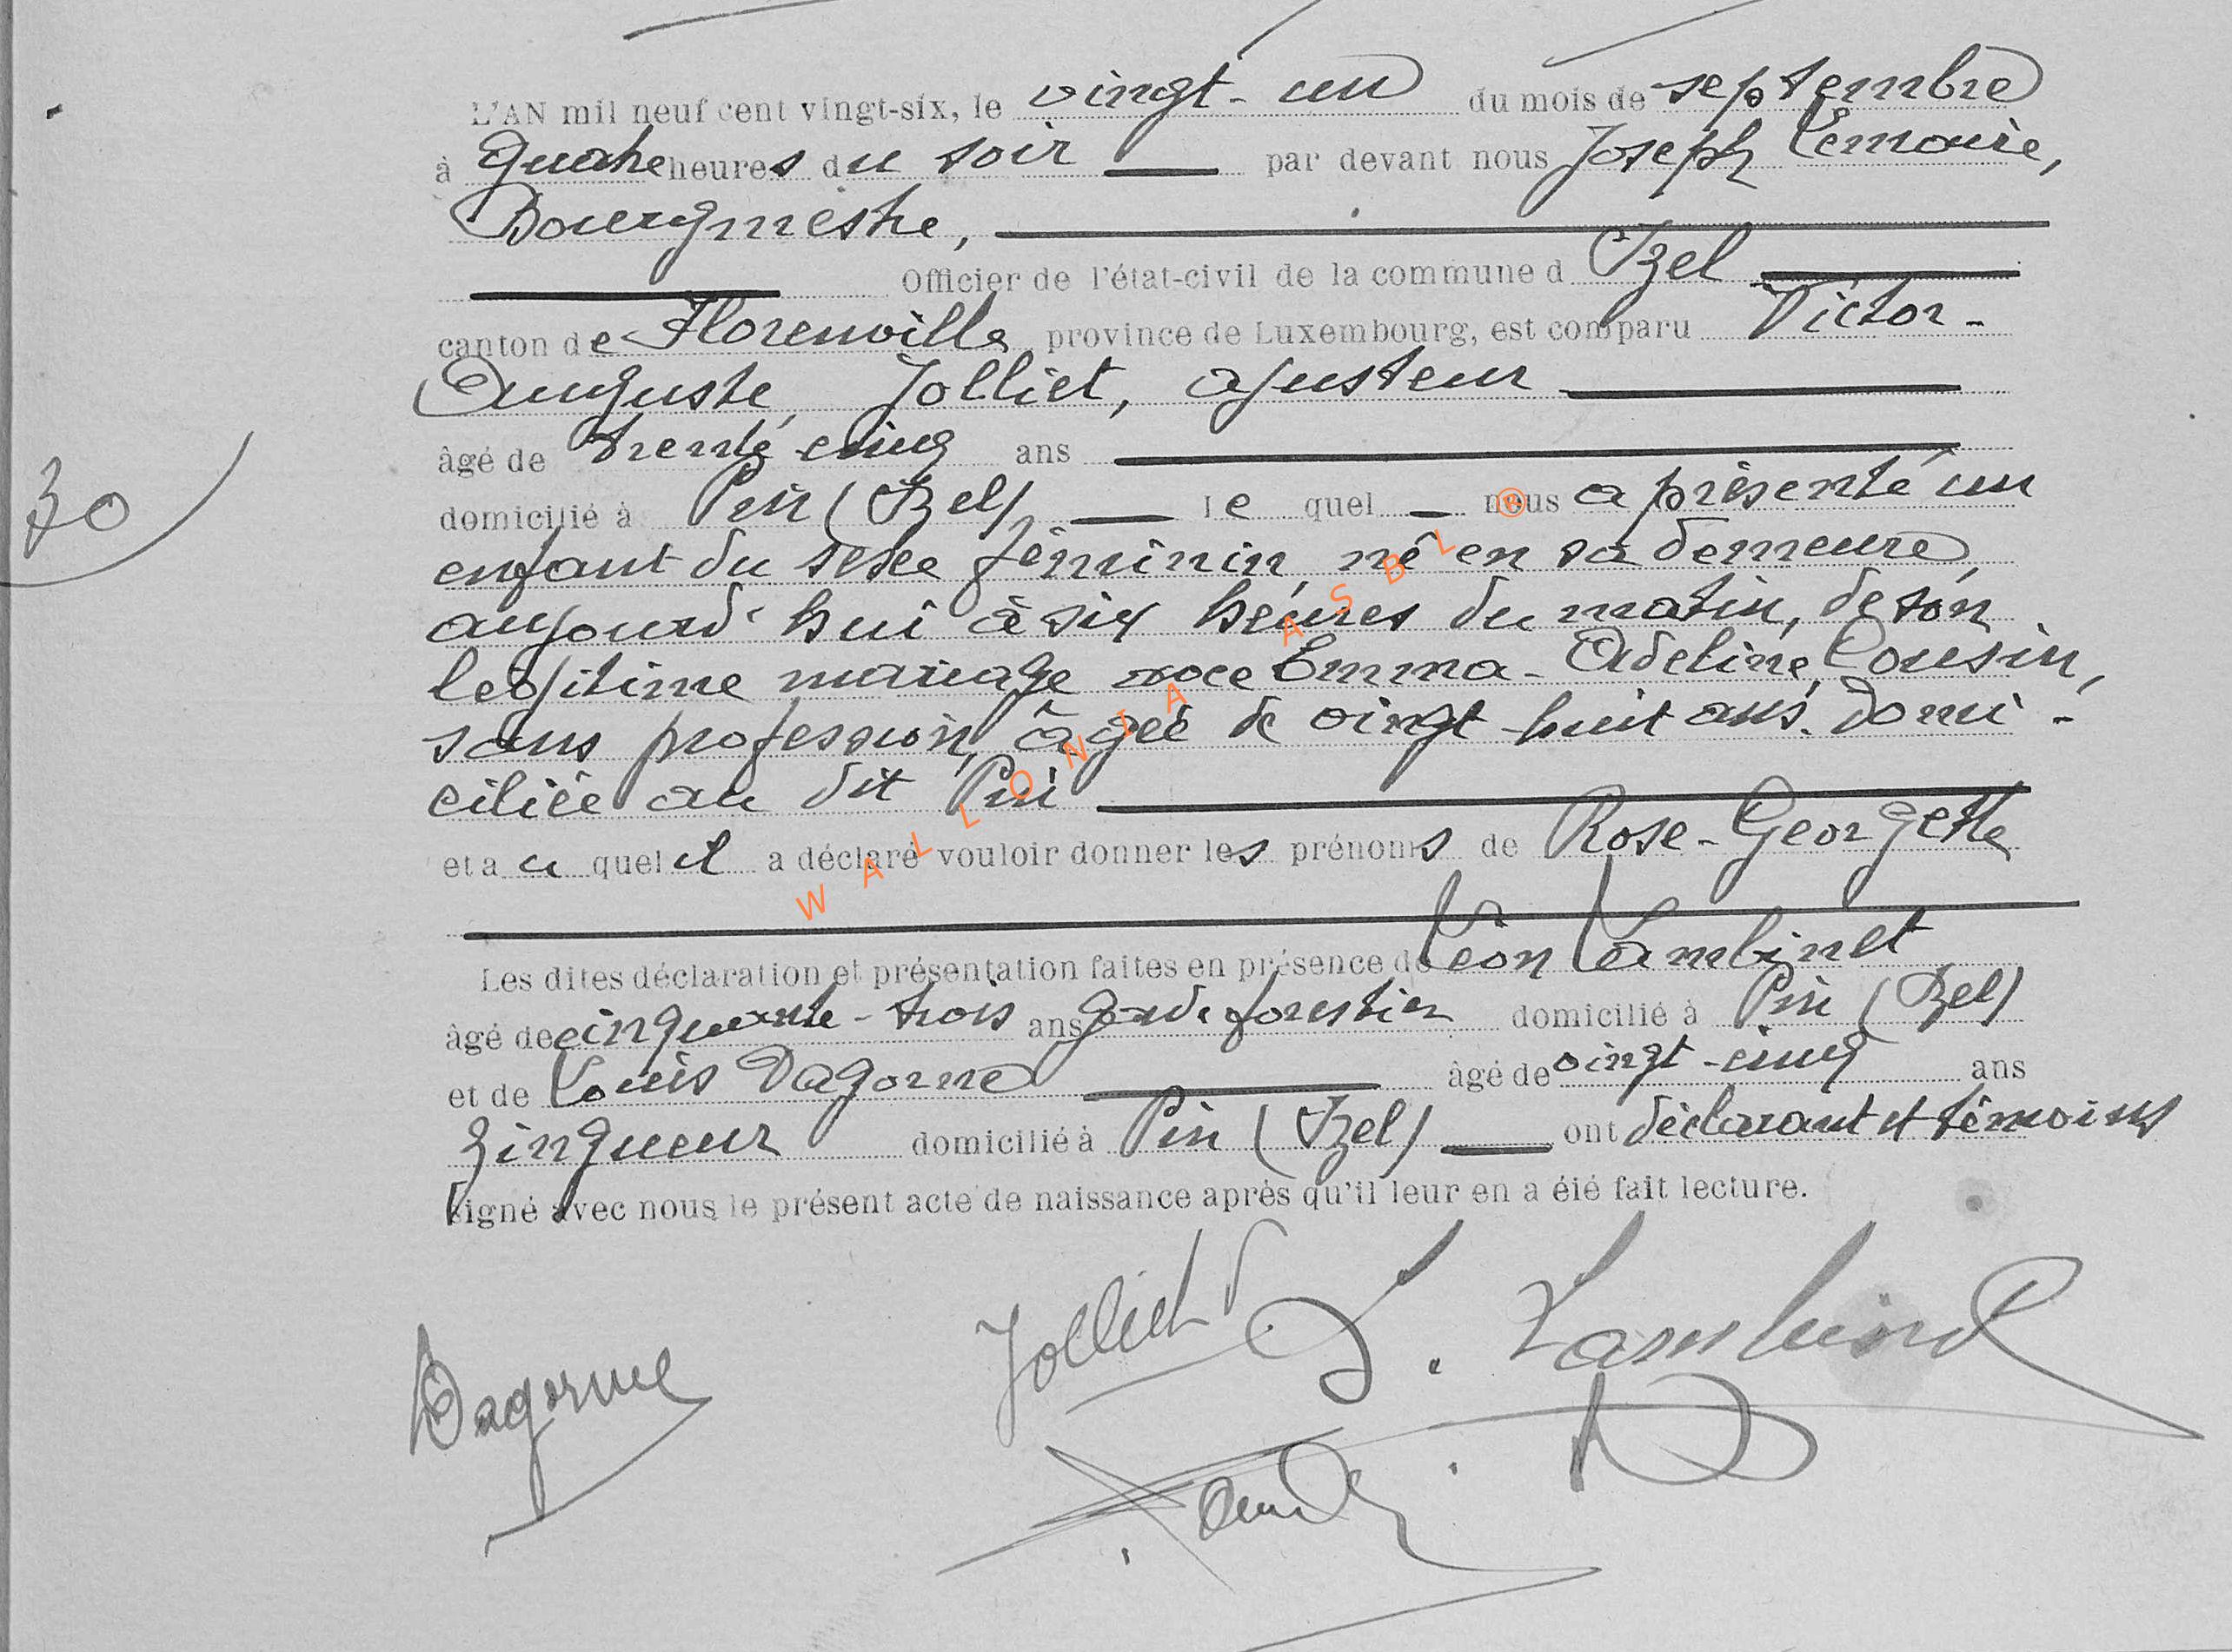 L'AN mil neuf cent vingt-six, le vingt-un du mois de septembre
à quatre heures du soir par devant nous Joseph Lemaire,
Bourgmestre,
Officier de l'état-civil de la commune d Izel
canton de Florenville province de Luxembourg, est comparu Victor-
Auguste Jolliet, ajusteur
âgé de trente cinq ans
domicilié à Pin (Izel) le quel nous a présenté un
enfant du sexe féminin, né en sa demeure,
aujourd'hui à six heures du matin, de son
légitime mariage avec Emma-Adeline Cousin,
sans profession, âgée de vingt-huit ans, domi-
30
ciliée au dit Pin
et a u quel il a déclaré vouloir donner les prénoms de Rose-Georgette
Les dites déclaration et présentation faites en présence de Léon Lambinet
âgé de cinquante-trois ans garde forestier domicilié à Pin (Izel)
et de Louis Dagorne âgé de vingt-cinq ans
zingueur domicilié à Pin (Izel) ont déclarant et témoins
signé avec nous le présent acte de naissance après qu'il leur en a été fait lecture.
Jolliet V
L. Lambinet
Dagorne
WALLONIA ASBL ®